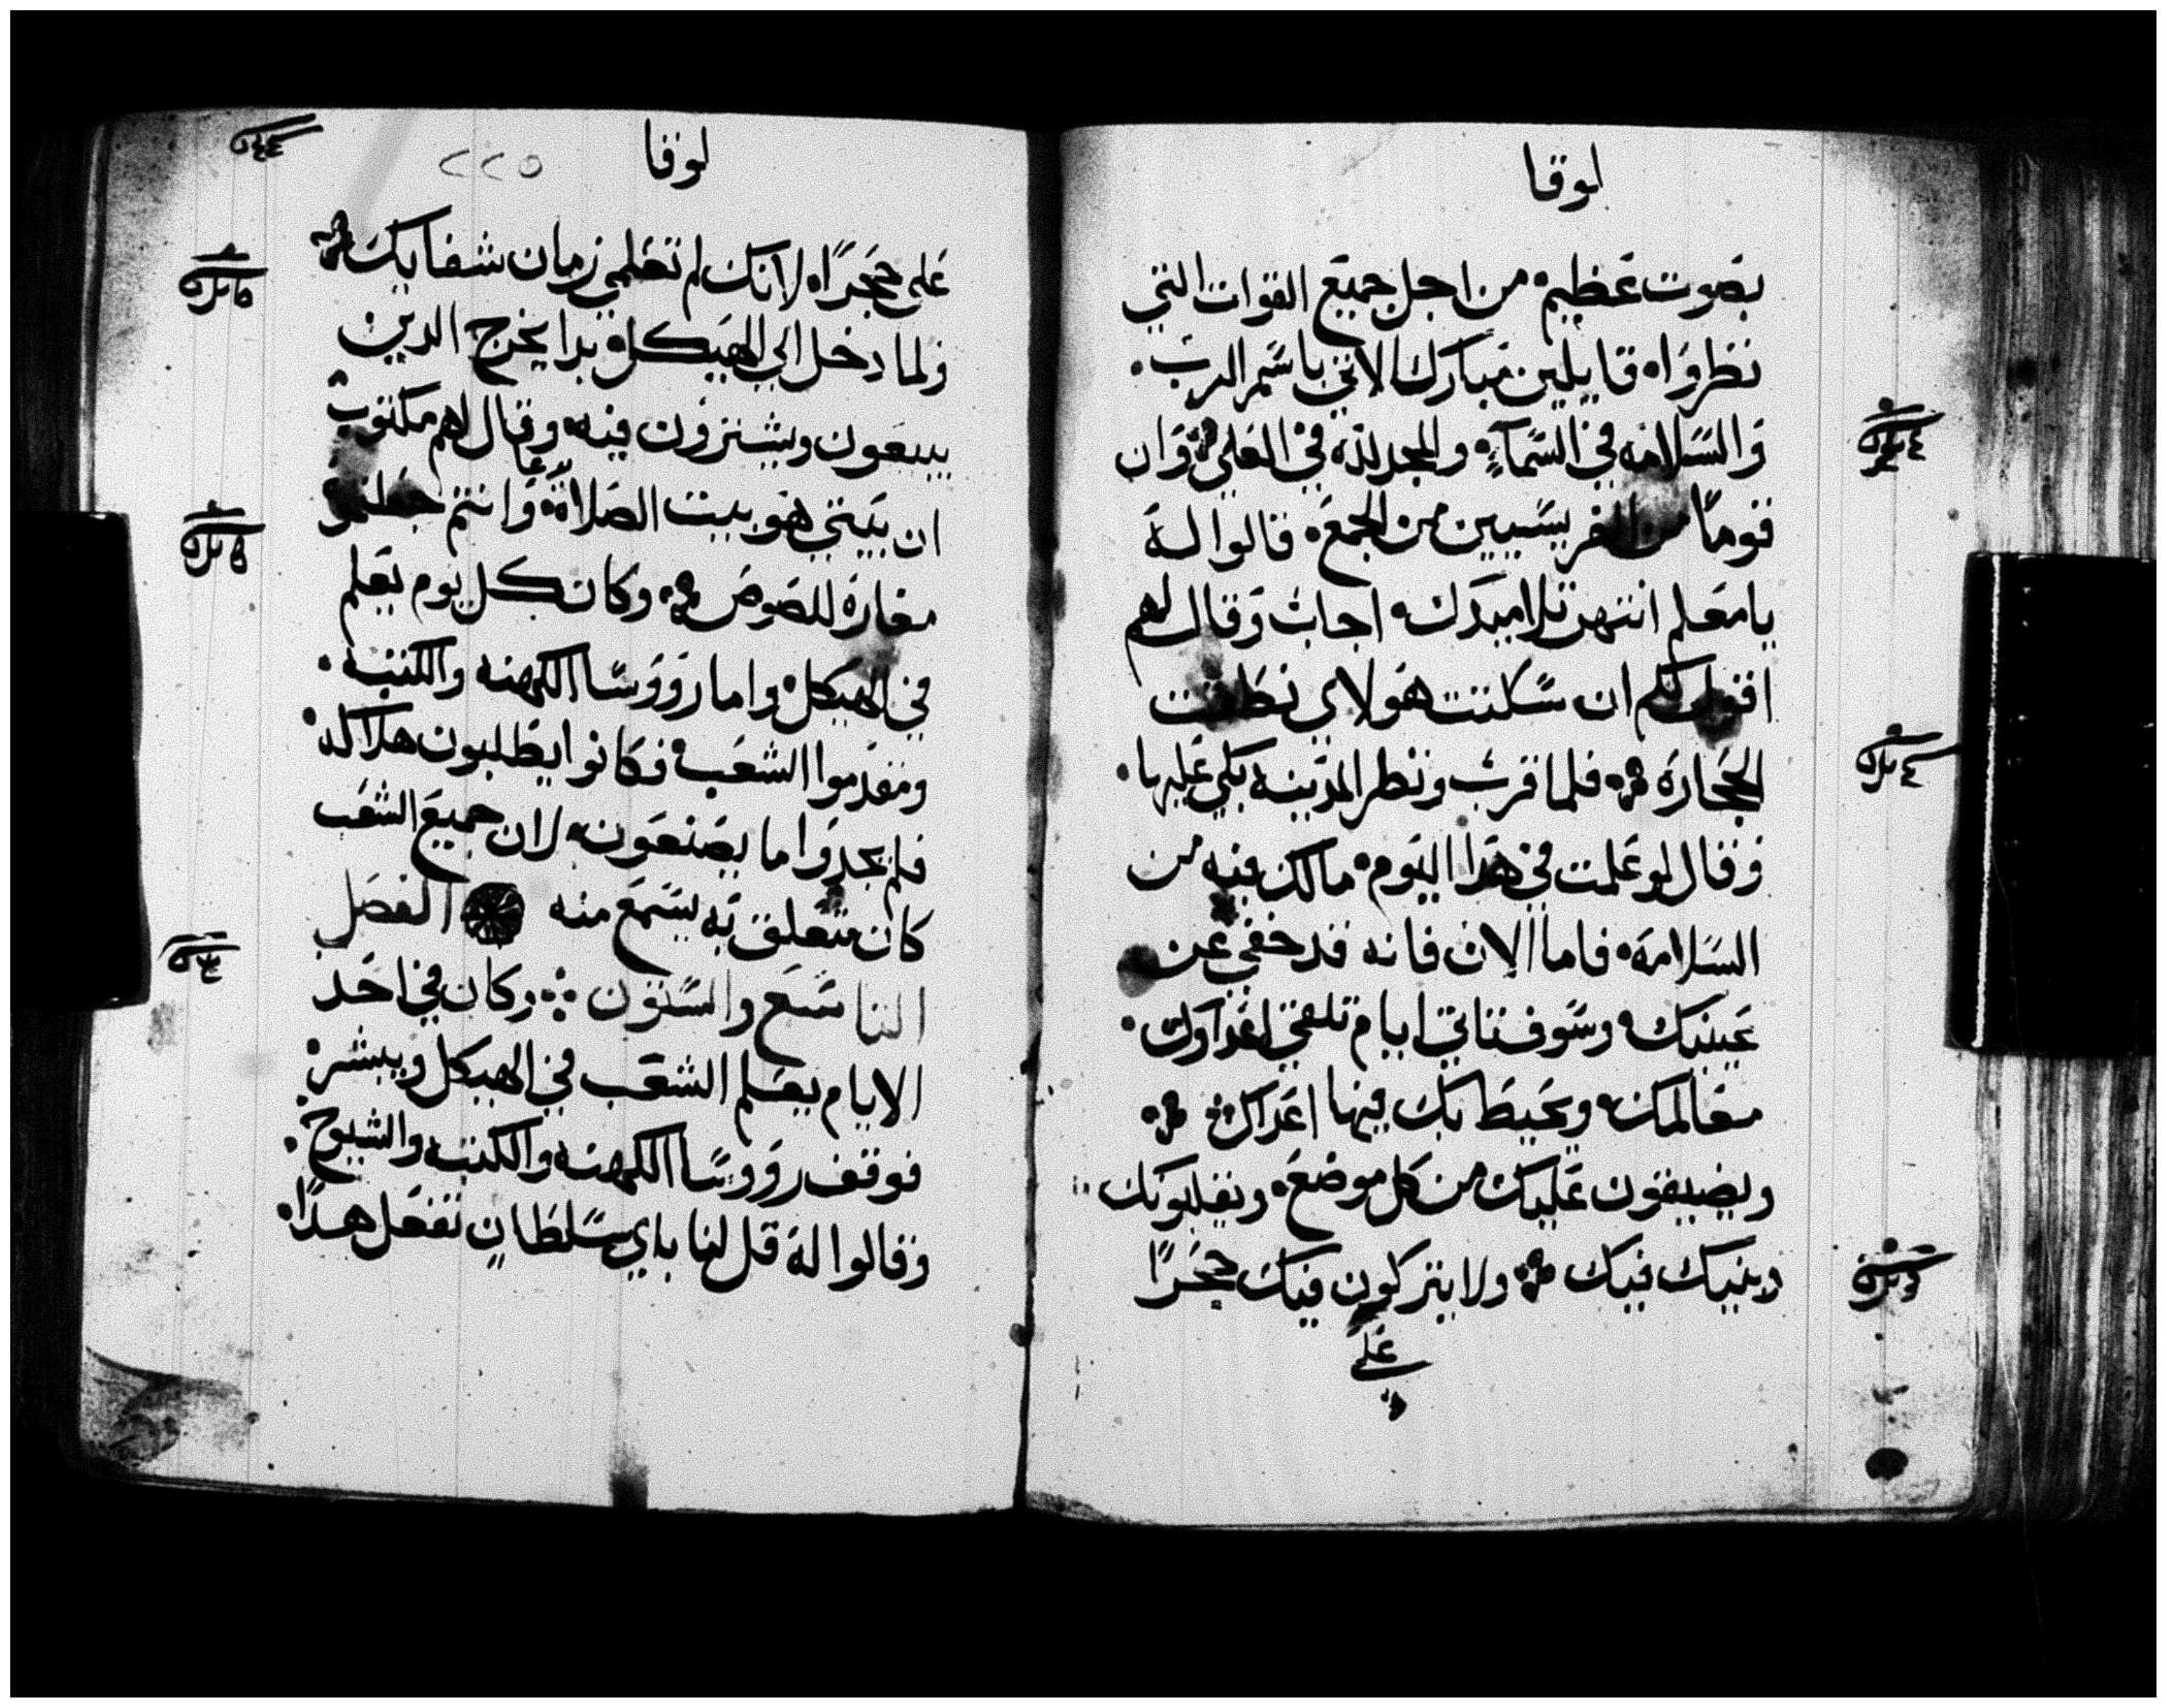 لوقا
بصوت عظيم من اجل جميع القوات التي
نظروا قايلين مبارك الاتي باسم الرب
والسلامه في السمآء والمجد لله في العلي وان
قومًا من الفريسيين من الجمع قالوا له
يا معلم انتهر تلاميدك اجاب وقال لهم
اقول لكم ان سكتت هولاي نطقت
الحجارة فلما قرب ونظر المدينه بكي عليها
وقال لو علمت في هدا اليوم مالك فيه من
السلامة فاما الان فانه قد خفي عن
عينيك وسوف تاتي ايام تلقي اعداوك
معالمك ويحيط بك فيها اعداك
ويضيقون عليك من كل موضع ويقلبونك
وبنيك فيك ولا يتركون فيك حجرًا
علي
لوقا
٢٢٥
علي حجرًا لانك لم تعلمي زمان شفايك
ولما دخل الي الهيكل بدا يخرج الدين
يبيعون ويشترون فيه وقال لهم مكتوب
ان بيتي هو بيت الصلاة يدعا وانتم جعلتموه
مغارة للصوص وكان كل يوم يعلم
في الهيكل واما رووسا الكهنه والكتبه
ومقدموا الشعب فكانوا يطلبون هلاكه
فلم يجدوا ما يصنعون لان جميع الشعب
كان متعلق به يسمع منه الفصل
التاسع والستون وكان في احد
الايام يعلم الشعب في الهيكل ويبشر
فوقف رووسا الكهنه والكتبه والشيوخ
وقالوا له قل لنا باي سلطان تفعل هدا